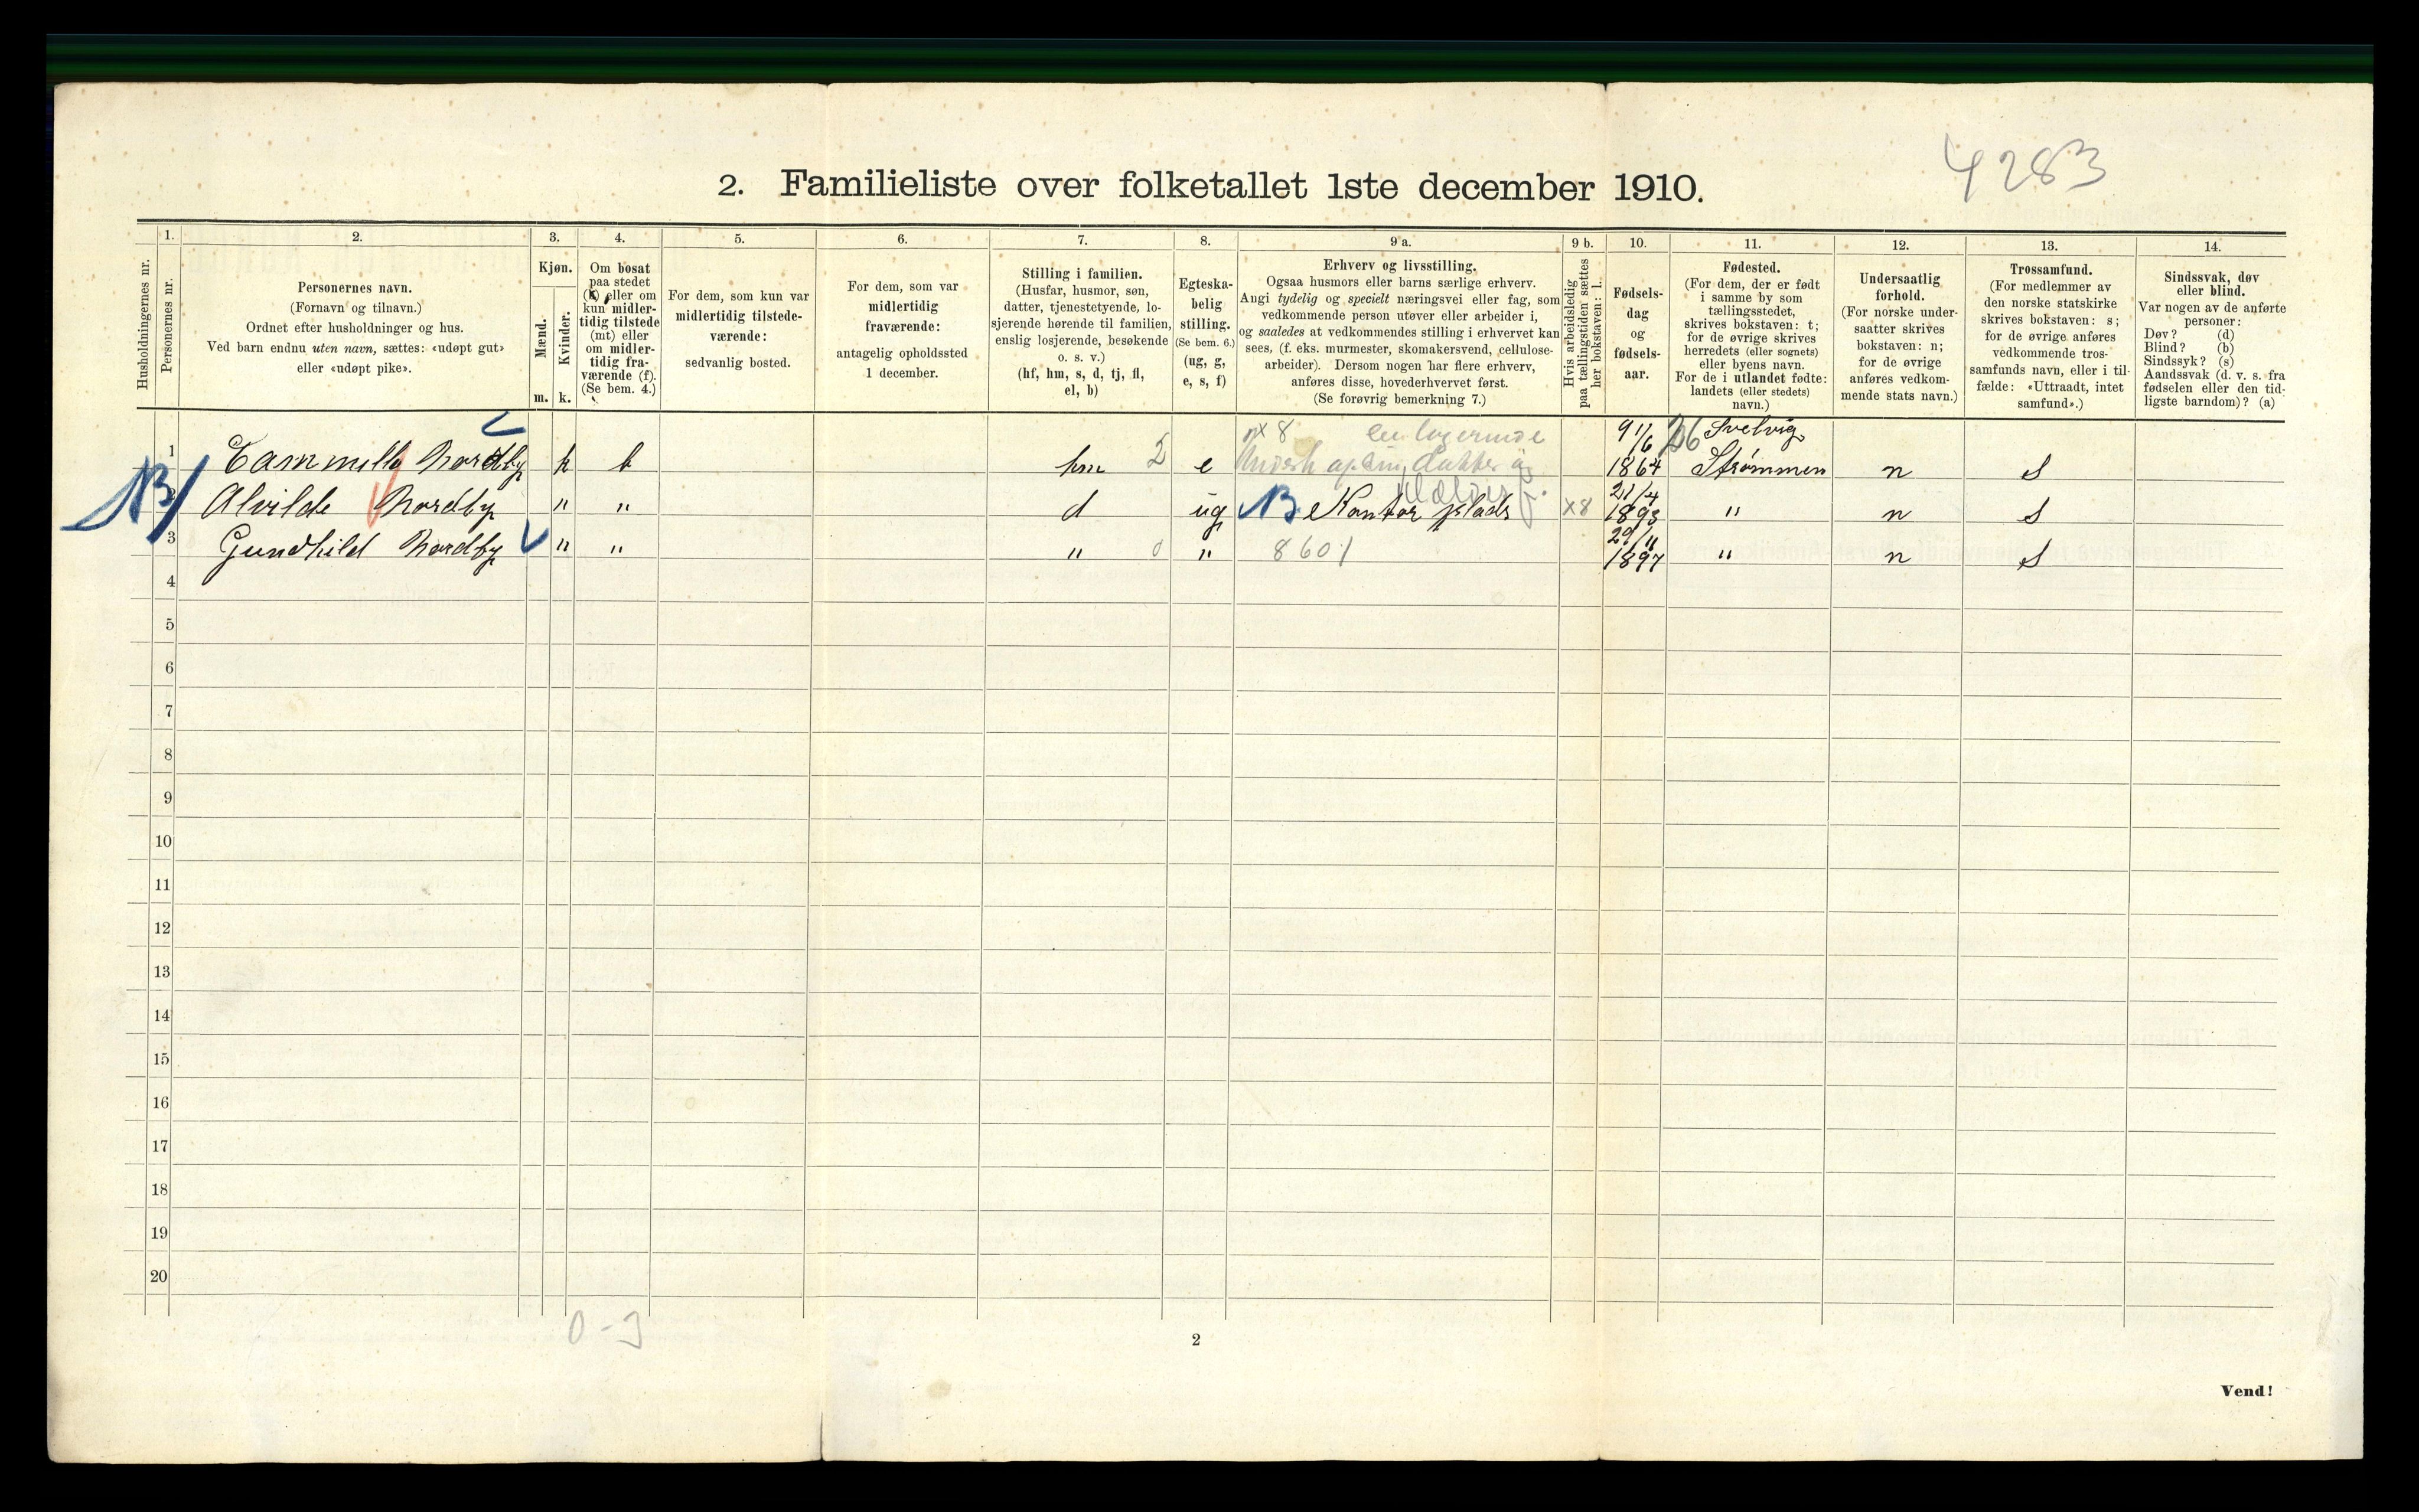 4283
2. Familieliste over folketallet 1ste december 1910.
Husholdningernes nr.
1.
Personernes nr.
2.
Personernes navn.
(Fornavn og tilnavn.)
Ordnet efter husholdninger og hus.
Ved barn endnu uten navn, sættes: «udøpt gut»
eller «udøpt pike».
3.
Kjøn.
Mænd.
Kvinder.
m. k.
4.
Om bosat
paa stedet
(b) eller om
kun midler-
tidig tilstede
(mt) eller
om midler-
tidig fra-
værende (f).
(Se bem. 4.)
5.
For dem, som kun var
midlertidig tilstede-
værende:
sedvanlig bosted.
6.
For dem, som var
midlertidig
fraværende:
antagelig opholdssted
1 december.
7.
Stilling i familien.
(Husfar, husmor, søn,
datter, tjenestetyende, lo-
sjerende hørende til familien,
enslig losjerende, besøkende
o. s. v.)
(hf, hm, s, d, tj, fl,
el, b)
8.
Egteska-
belig
stilling.
(Se bem. 6.)
(ug, g,
e, s, f)
9 a.
Erhverv og livsstilling.
Ogsaa husmors eller barns særlige erhverv.
Angi tydelig og specielt næringsvei eller fag, som
vedkommende person utøver eller arbeider i,
og saaledes at vedkommendes stilling i erhvervet kan
sees, (f. eks. murmester, skomakersvend, cellulose-
arbeider). Dersom nogen har flere erhverv,
anføres disse, hovederhvervet først.
(Se forøvrig bemerkning 7.)
9 b.
Hvis arbeidsledig
paa tællingstiden sættes
her bokstaven: l.
10.
Fødsels-
dag
og
fødsels-
aar.
11.
Fødested.
(For dem, der er født
i samme by som
tællingsstedet,
skrives bokstaven: t;
for de øvrige skrives
herredets (eller sognets)
eller byens navn.
For de i utlandet fødte:
landets (eller stedets)
navn.)
12.
Undersaatlig
forhold.
(For norske under-
saatter skrives
bokstaven: n;
for de øvrige
anføres vedkom-
mende stats navn.)
13.
Trossamfund.
(For medlemmer av
den norske statskirke
skrives bokstaven: s;
for de øvrige anføres
vedkommende tros-
samfunds navn, eller i til-
fælde: «Uttraadt, intet
samfund».)
14.
Sindssvak, døv
eller blind.
Var nogen av de anførte
personer:
Døv? (d)
Blind? (b)
Sindssyk? (s)
Aandssvak (d. v. s. fra
fødselen eller den tid-
ligste barndom)? (a)
x8 en logerende 26 Svelvig
1 Nordby k b hm 2 e datter 1864 Strømmen n s
2 Alvilde Nordby " " d ug Kontor plads x8 21/4 1893 " n s
3 Gundhild Nordby " " " 0 " 8601 29/11 1897 " n s
4
5
6
7
8
9
10
11
12
13
14
15
16
17
18
19
20
0-3
2
Vend!